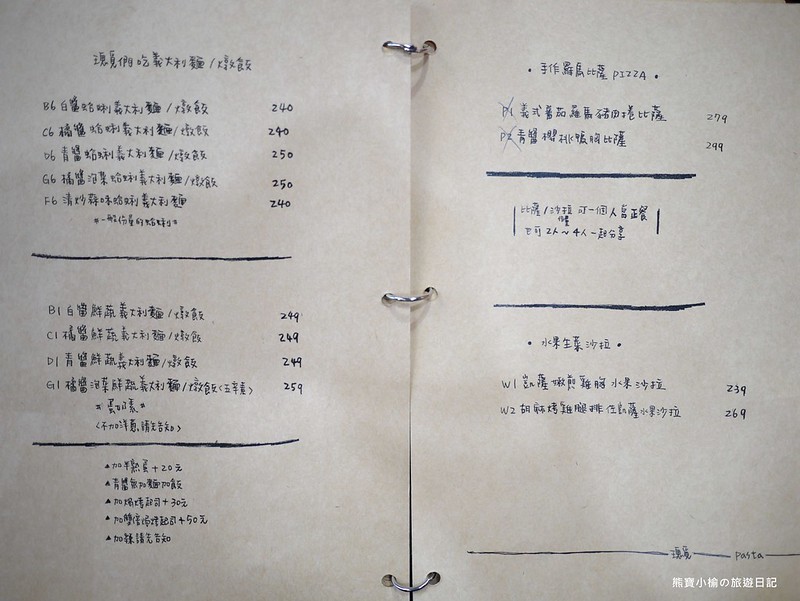 們吃義大利麵/燉飯
B6 白醬蛤蜊義大利麵/燉飯 240
C6 橘醬蛤蜊義大利麵/燉飯 240
D6 青醬蛤蜊義大利麵/燉飯 250
G6 橘醬泡菜蛤蜊義大利麵/燉飯 250
F6 清炒蒜味蛤蜊義大利麵 240
*一般份量的蛤蜊*
B1 白醬鮮蔬義大利麵/燉飯 249
C1 橘醬鮮蔬義大利麵/燉飯 249
D1 青醬鮮蔬義大利麵/燉飯 249
G1 橘醬泡菜鮮蔬義大利麵/燉飯<五辛素> 259
*素*
<不加洋蔥請先告知>
▲加半熟蛋+20元
▲青醬無加麵加飯
▲加焗烤起司+30元
▲加雙倍焗烤起司+50元
▲加辣請先告知
•手作羅馬比薩 PIZZA•
D1 義式蕃茄羅馬豬肉捲比薩 279
D2 青醬櫻桃鴨胸比薩 299
比薩/沙拉可一個人當正餐
份量
也可2人~4人一起分享
•水果生菜沙拉•
W1 凱薩嫩煎雞胸水果沙拉 239
W2 胡麻烤雞腿排佐凱薩水果沙拉 269
pasta
熊寶小榆の旅遊日記